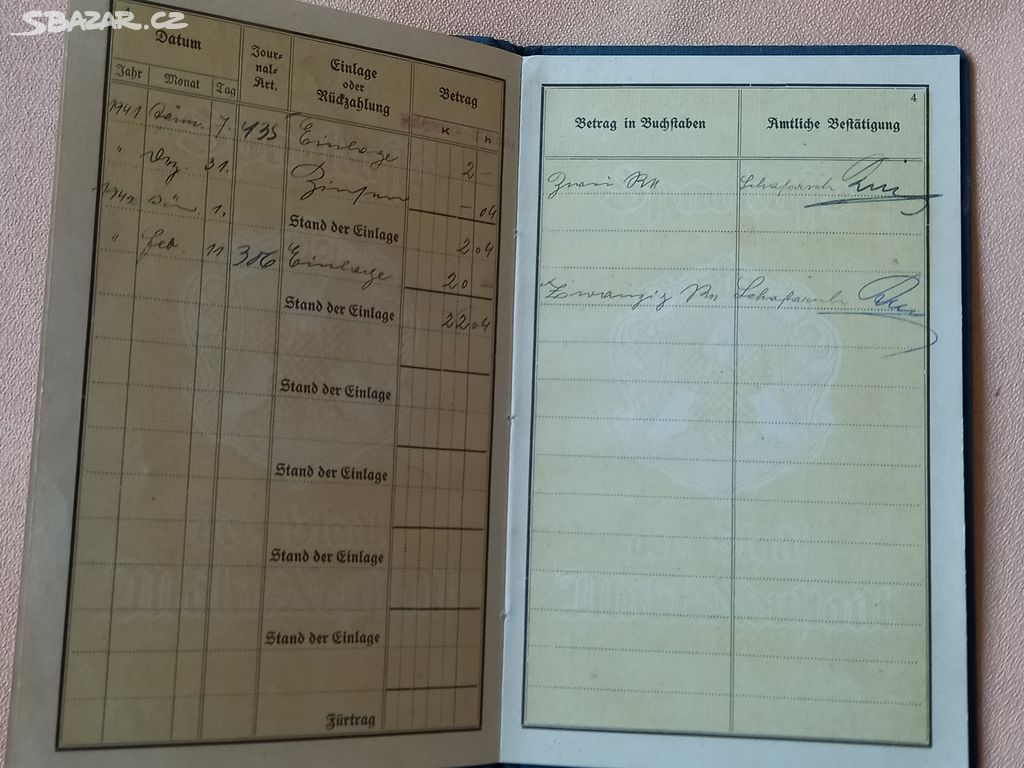 SBAZAR.CZ
4
Datum
Jahr
Monat
Tag
Jour-
nal-
Art.
Einlage
oder
Rückzahlung
Betrag
K
h
1941 Jänn. 7. 435 Einlage 2 –
" Dez. 31. Zinsen – 04
1942 Jän. 1. Stand der Einlage 2 04
" Feb. 11. 306 Einlage 20 –
Stand der Einlage 22 04
Stand der Einlage
Stand der Einlage
Stand der Einlage
Stand der Einlage
Fürtrag
4
Betrag in Buchstaben
Amtliche Bestätigung
Zwei RM
Zwanzig RM